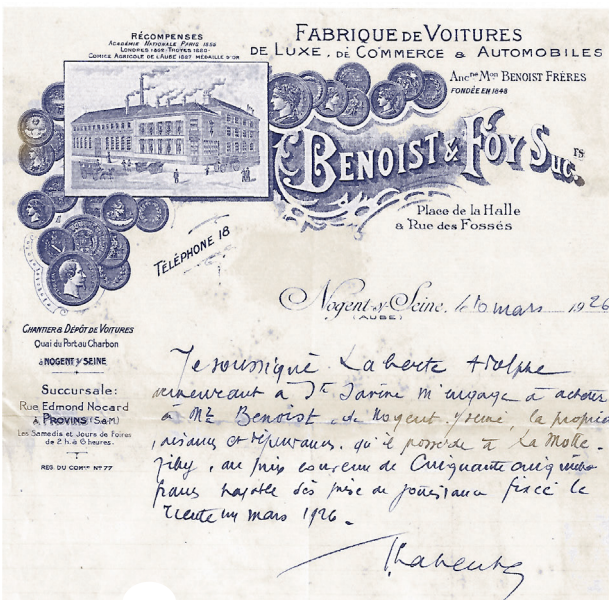 RÉCOMPENSES
ACADÉMIE NATIONALE PARIS 1858
LONDRES 1862 - TROYES 1860
COMICE AGRICOLE DE L'AUBE 1887 MÉDAILLE D'OR
FABRIQUE DE VOITURES
DE LUXE, DE COMMERCE & AUTOMOBILES
ANCne Mon BENOIST FRÈRES
FONDÉE EN 1848
BENOIST & FOY SUCrs
Place de la Halle
& Rue des Fossés
TÉLÉPHONE 18
Nogent s/ Seine, le 10 mars 1926
(AUBE)
CHANTIER & DÉPÔT DE VOITURES
Quai du Port au Charbon
à NOGENT s/ SEINE
Succursale:
Rue Edmond Nocard
à PROVINS (S&M)
Les Samedis et Jours de Foires
de 2 h. à 6 heures.
REG. DU COMce N° 77
Je soussigné Laherte Adolphe
demeurant à Ste Savine m'engage à acheter
à Mr Benoist, de Nogent s/ Seine, la propriété
qu'il possède à La Motte
Tilly, au prix de Cinquante cinq mille
francs payable dès prise de jouissance fixée le
trente un mars 1926.